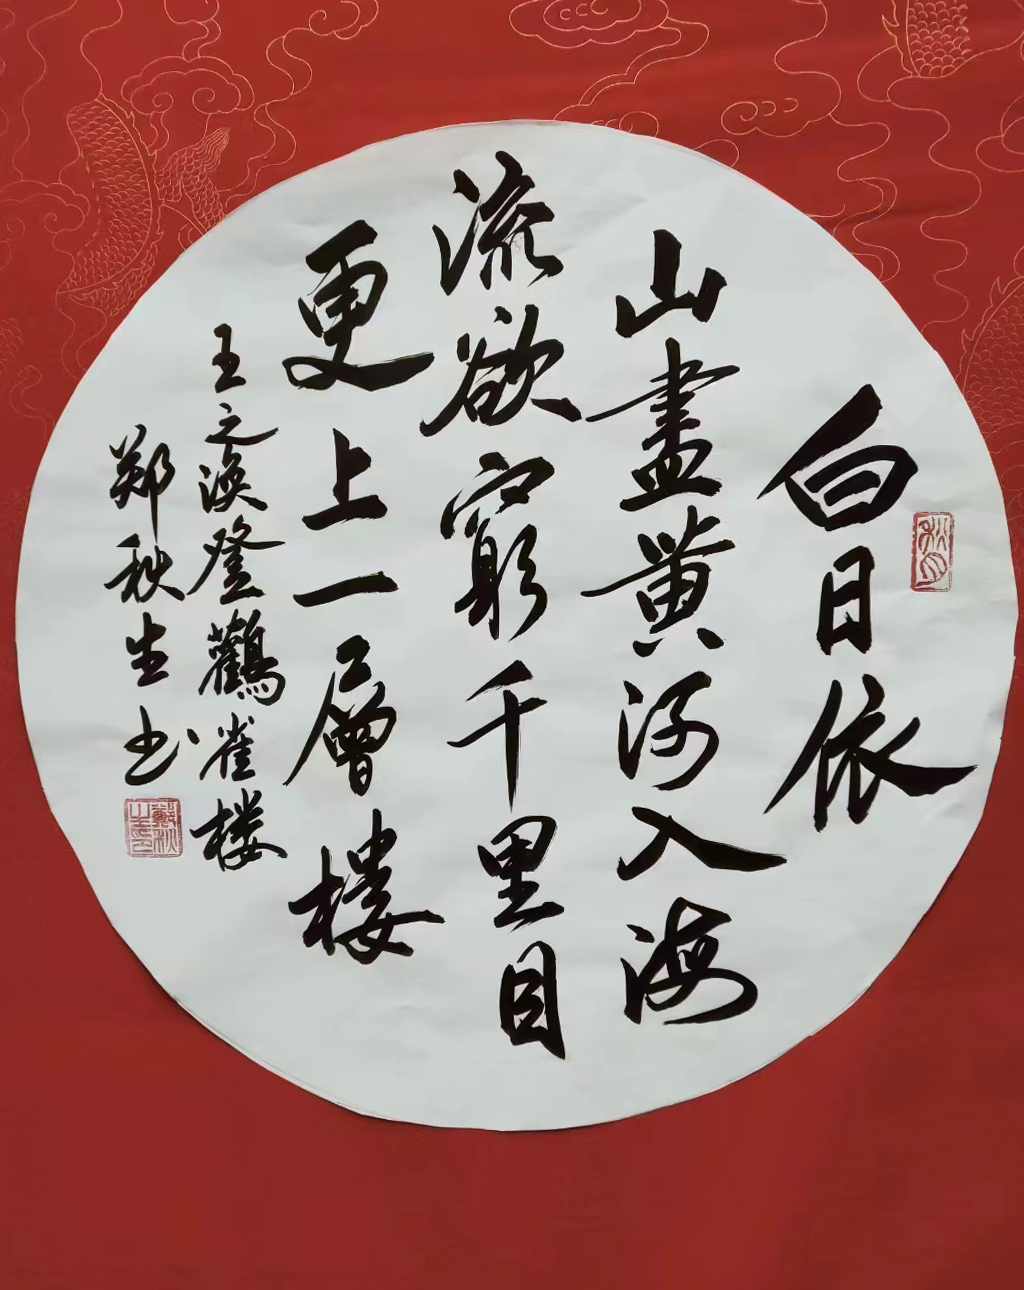 白日依
山盡黄河入海
流欲窮千里目
更上一層樓
王之渙登鸛雀楼
郑秋生书